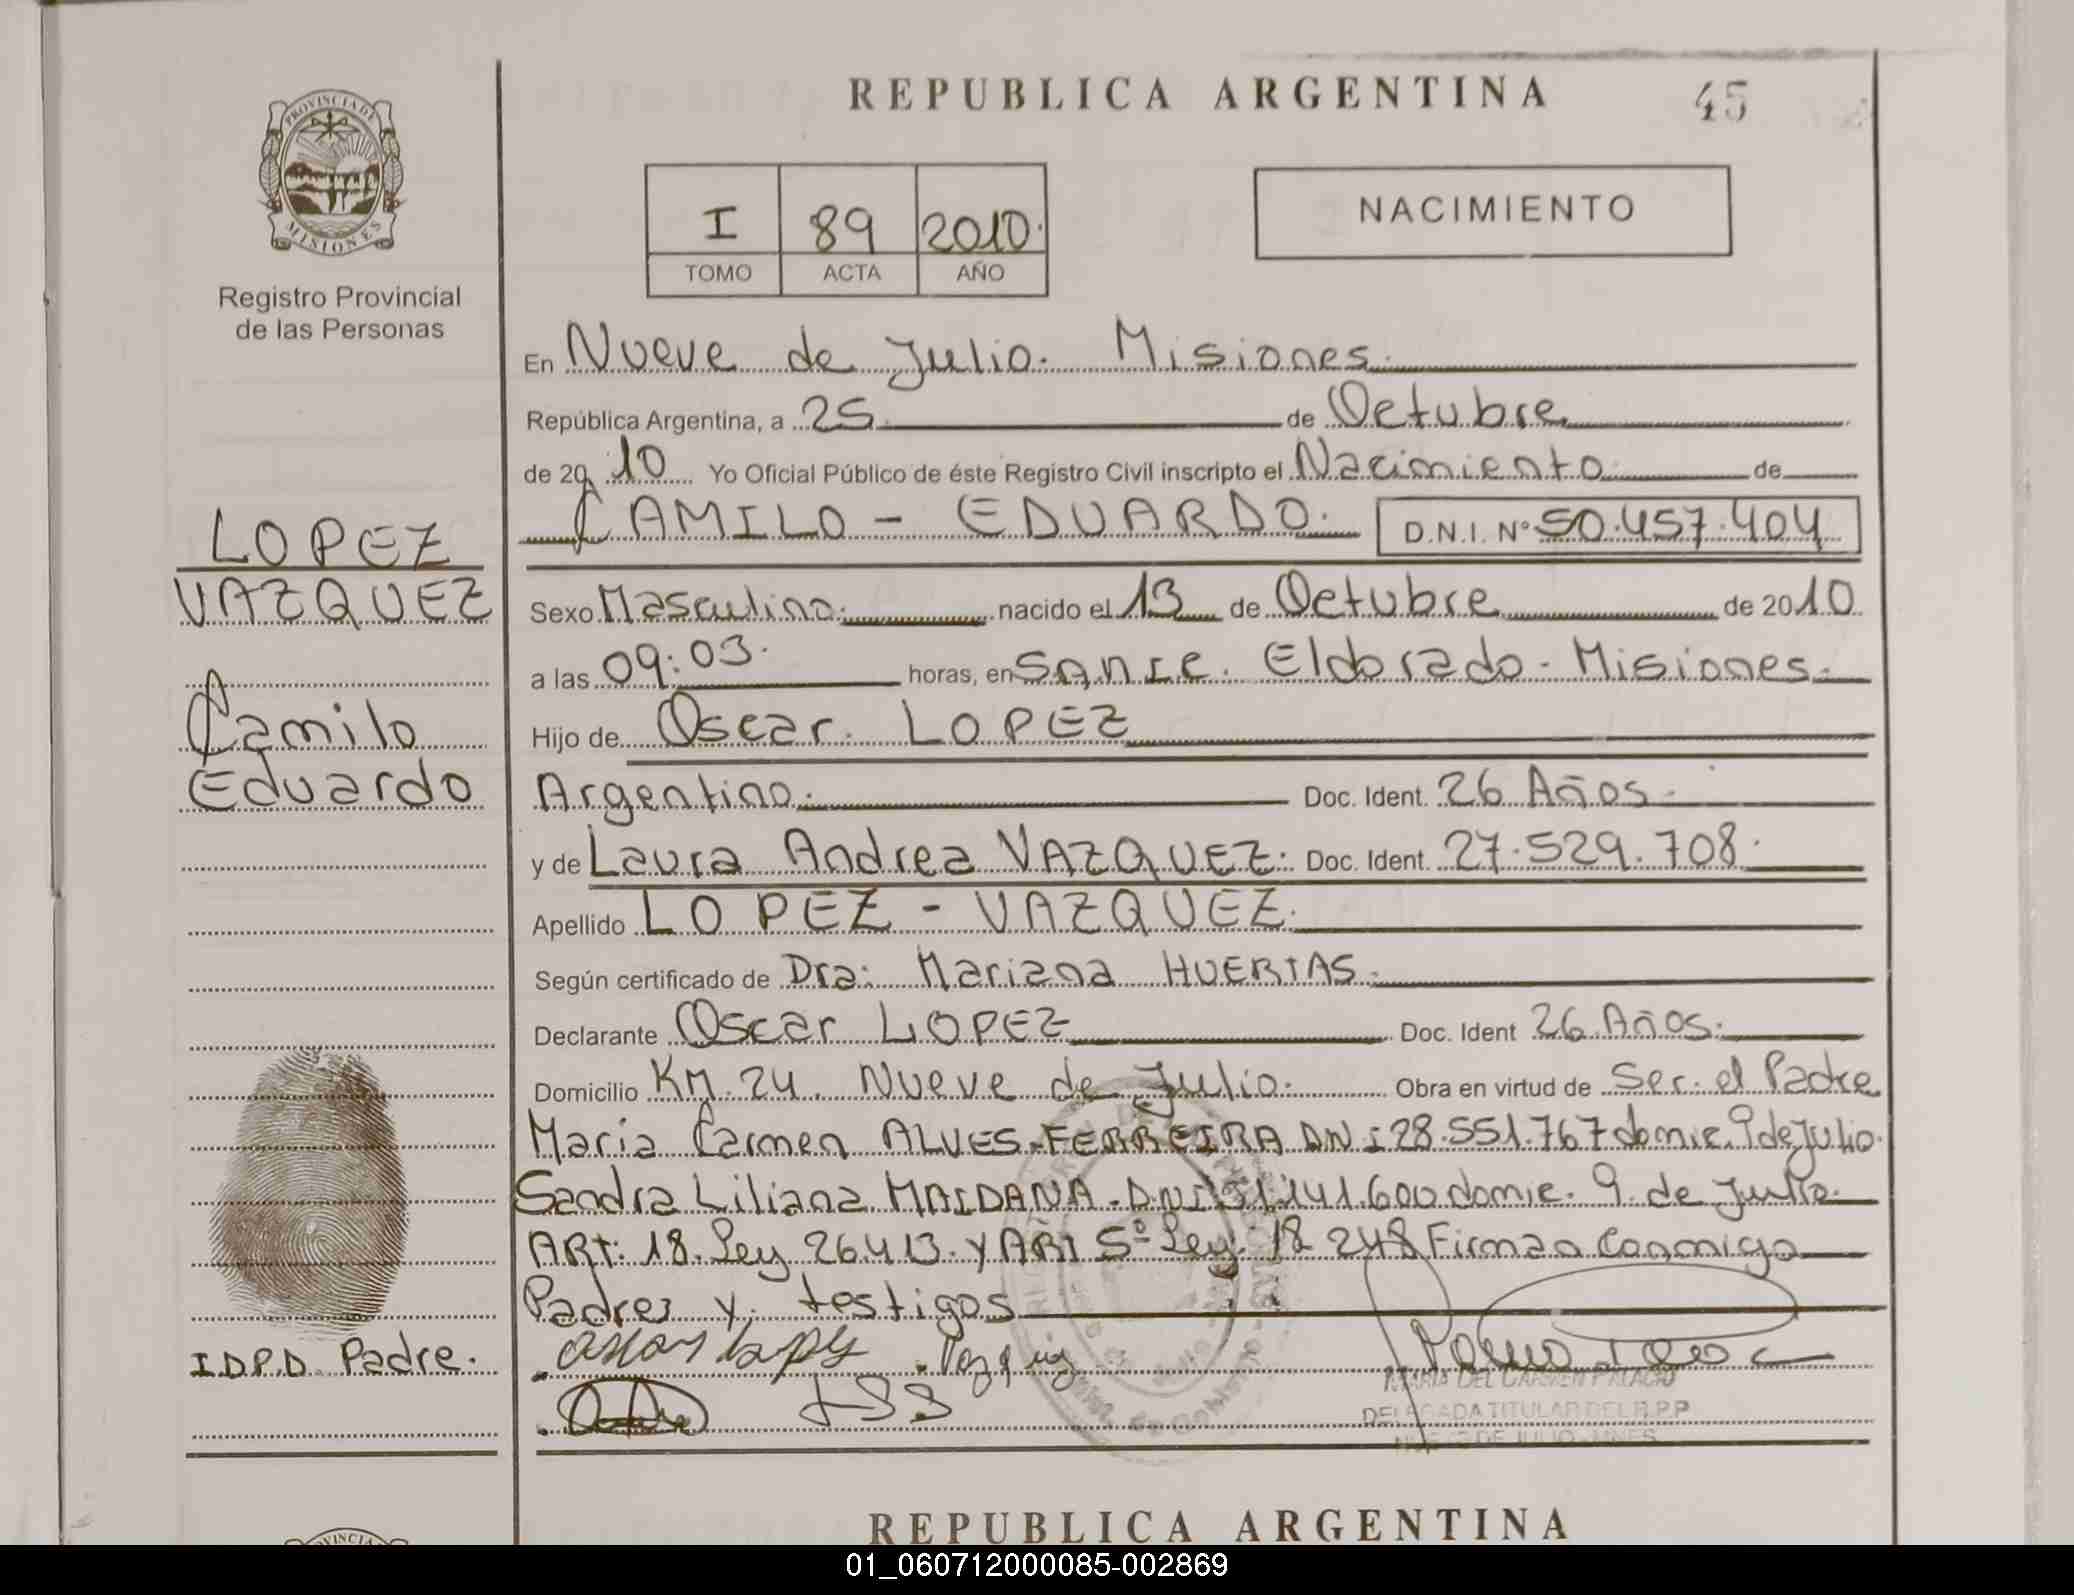 REPUBLICA ARGENTINA
45
PROVINCIA DE
MISIONES
Registro Provincial
de las Personas
I 89 2010.
TOMO ACTA AÑO
NACIMIENTO
En Nueve de Julio. Misiones.
República Argentina, a 25 de Octubre
de 20 10 Yo Oficial Público de éste Registro Civil inscripto el Nacimiento de
CAMILO - EDUARDO. D.N.I. Nº 50.457.404
LOPEZ
VAZQUEZ
Camilo
Eduardo
Sexo Masculino. nacido el 13 de Octubre de 2010
a las 09:03. horas, en Eldorado. Misiones.
Hijo de Oscar LOPEZ
Argentino. Doc. Ident. 26 Años.
y de Laura Andrea VAZQUEZ. Doc. Ident. 27.529.708.
Apellido LOPEZ - VAZQUEZ.
Según certificado de Dra: Mariana HUERTAS.
Declarante Oscar LOPEZ Doc. Ident 26 Años.
Domicilio KM. 24. Nueve de Julio. Obra en virtud de Ser el Padre
Maria Carmen ALVES-FERREIRA DNI 28.551.767 domic. 9 de Julio.
Sandra Liliana MAIDANA. DNI 31.141.600 domic. 9 de Julio.
ART. 18. Ley 26413. Y ART 5º Ley. 18 248 Firman Conmigo
Padres y testigos
I.D.P.D. Padre.
MARIA DEL CARMEN PALACIO
DELEGADA TITULAR DEL R.P.P
NUEVE DE JULIO - MNES
REPUBLICA ARGENTINA
01_060712000085-002869